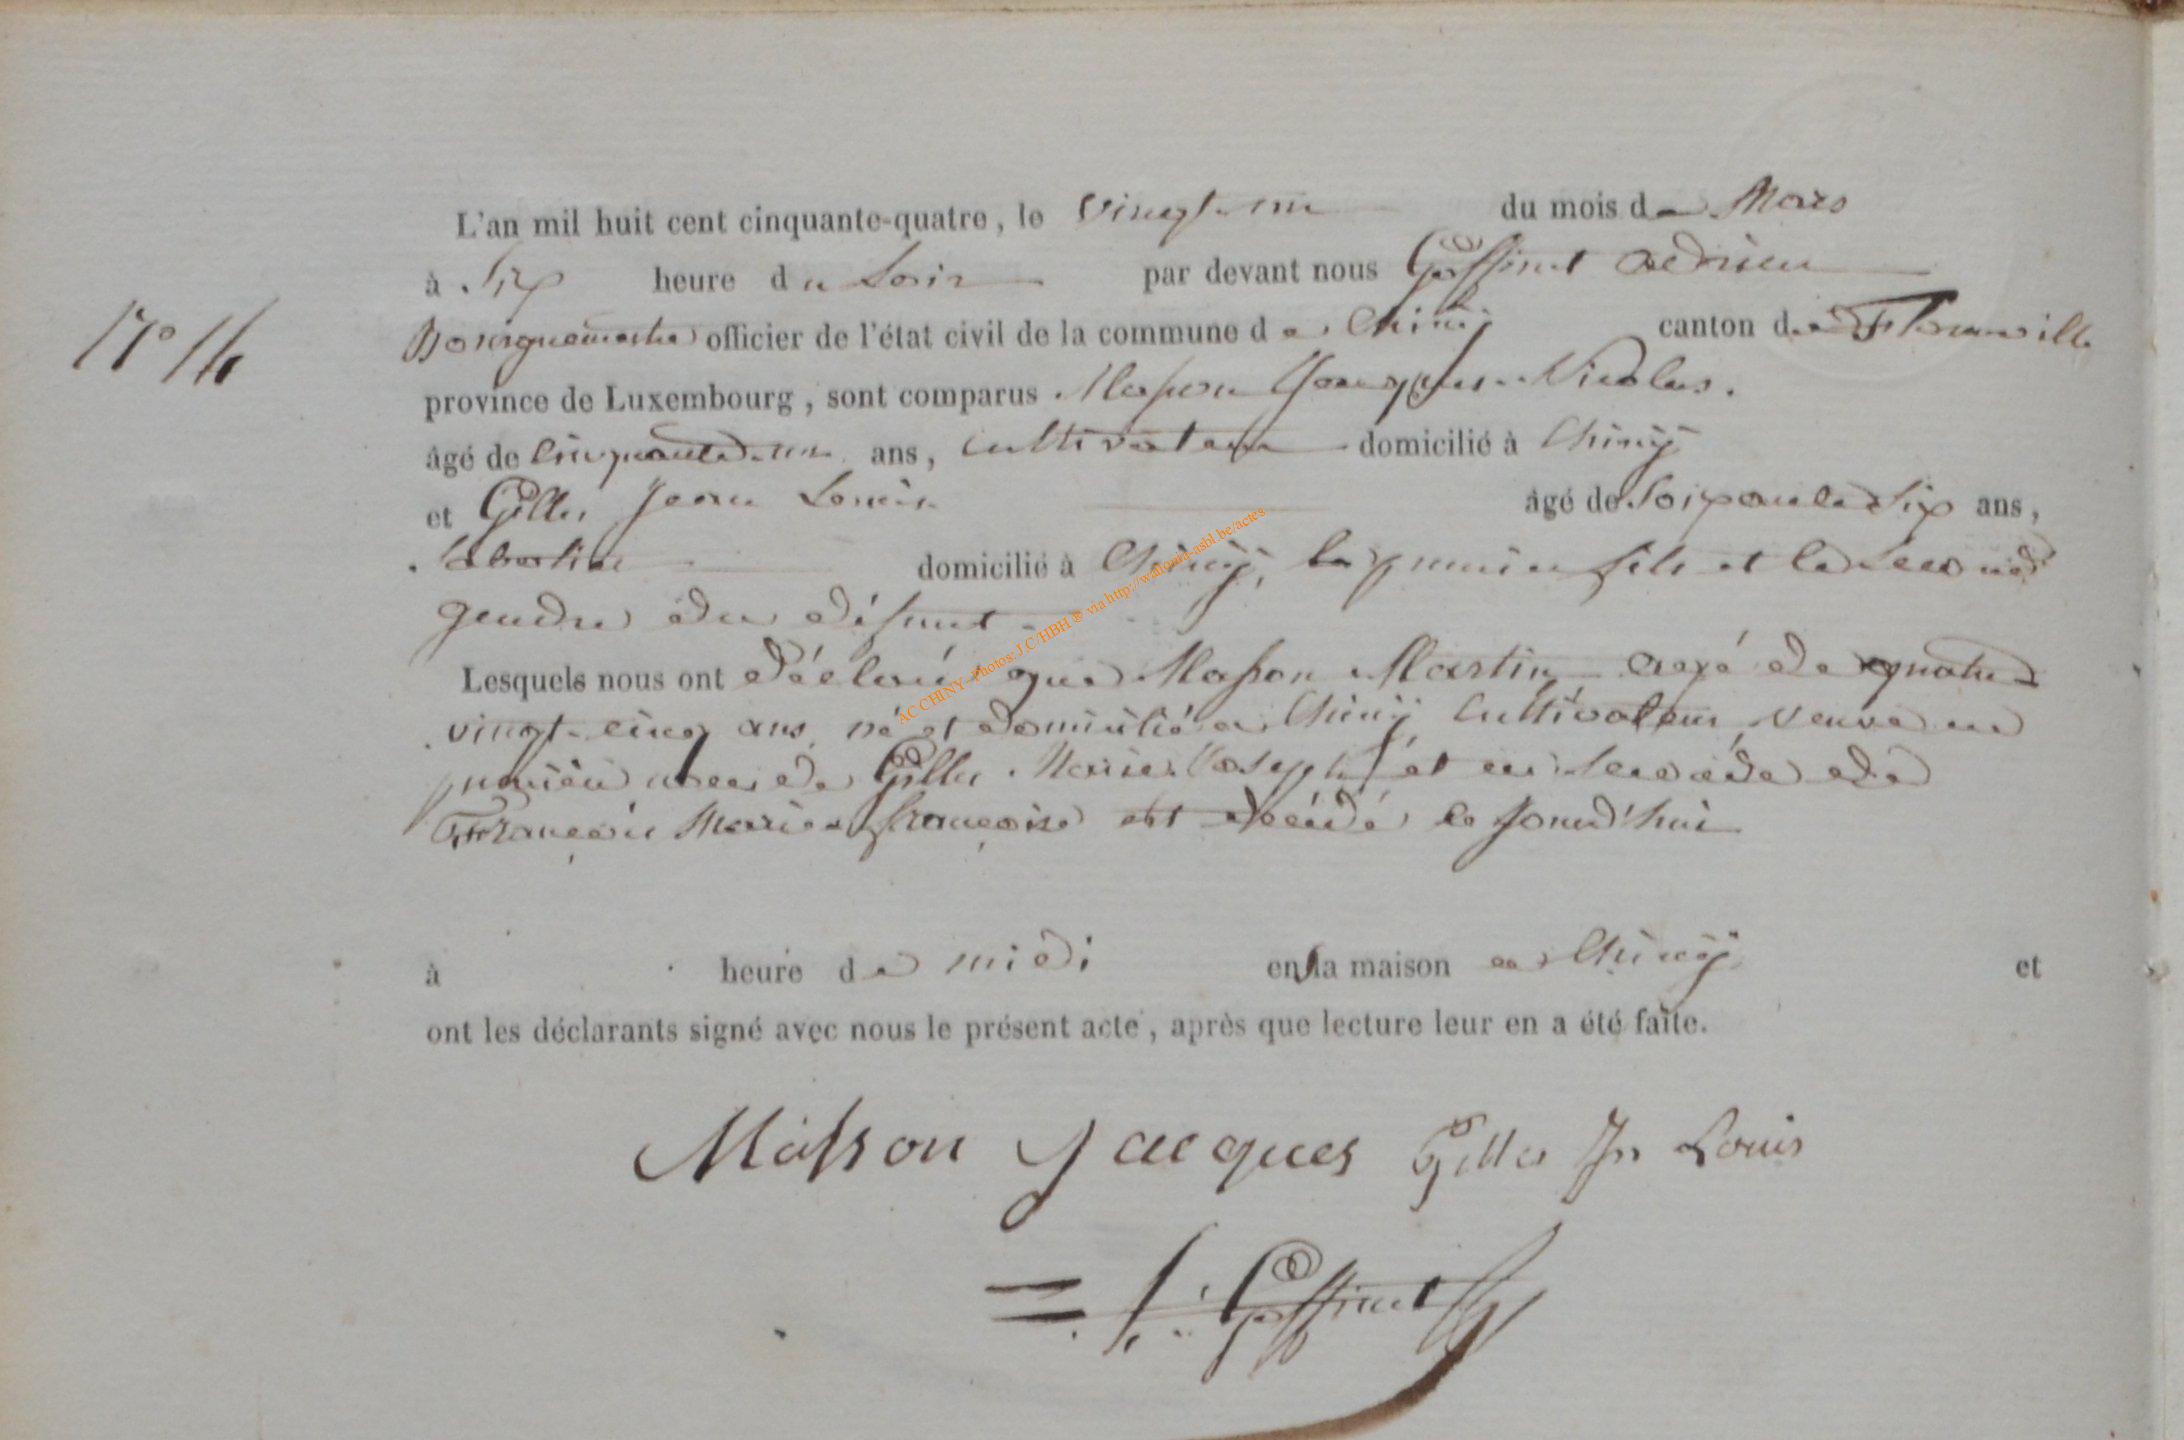 L'an mil huit cent cinquante-quatre, le vingt-un du mois de Mars
à Six heure du Soir par devant nous Goffinet adrien
N° 14
Bourguemestre officier de l'état civil de la commune de Chiny canton de Florenville
province de Luxembourg, sont comparus Masson Jacques-Nicolas.
âgé de cinquante-un ans, cultivateur domicilié à Chiny
et Gilles Jean Louis âgé de soixante Six ans,
domicilié à Chiny, le premier fils et le second
gendre du défunt.
Lesquels nous ont déclaré que Masson Martin agé de quatre
vingt-cinq ans, né et domicilié a Chiny, Cultivateur, veuve en
premiere noces de Gilles Marie Joseph, et en seconde de
François Marie françoise est décédé le jourd'hui
à heure de midi en sa maison a Chiny et
ont les déclarants signé avec nous le présent acte, après que lecture leur en a été faite.
Masson Jacques Gilles Jn Louis
Goffinet
AC CHINY-Photos: J.C/HBH ® via http://wallonia-asbl.be/actes